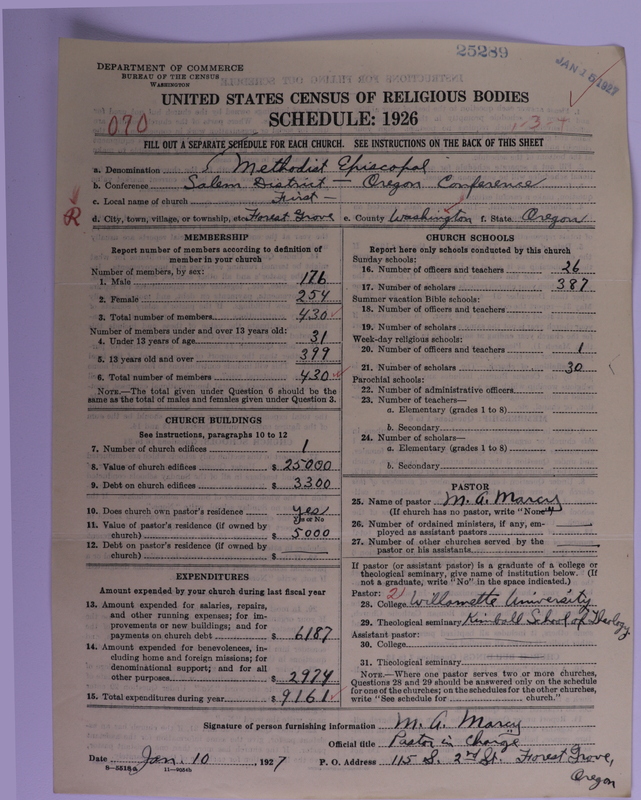 25289
JAN 15 1927
DEPARTMENT OF COMMERCE
BUREAU OF THE CENSUS
WASHINGTON
UNITED STATES CENSUS OF RELIGIOUS BODIES
SCHEDULE: 1926
090
1-3-7
FILL OUT A SEPARATE SCHEDULE FOR EACH CHURCH. SEE INSTRUCTIONS ON THE BACK OF THIS SHEET
a. Denomination Methodist Episcopal
b. Conference Salem District — Oregon Conference
c. Local name of church First —
R
d. City, town, village, or township, etc. Forest Grove e. County Washington f. State Oregon
MEMBERSHIP
Report number of members according to definition of
member in your church
Number of members, by sex:
1. Male 176
2. Female 254
3. Total number of members 430
Number of members under and over 13 years old:
4. Under 13 years of age 31
5. 13 years old and over 399
6. Total number of members 430
NOTE.—The total given under Question 6 should be the
same as the total of males and females given under Question 3.
CHURCH BUILDINGS
See instructions, paragraphs 10 to 12
7. Number of church edifices 1
8. Value of church edifices $ 25000
9. Debt on church edifices $ 3300
10. Does church own pastor's residence yes
Yes or No
11. Value of pastor's residence (if owned by
church) $ 5000
12. Debt on pastor's residence (if owned by
church) $
EXPENDITURES
Amount expended by your church during last fiscal year
13. Amount expended for salaries, repairs,
and other running expenses; for im-
provements or new buildings; and for
payments on church debt $ 6187
14. Amount expended for benevolences, in-
cluding home and foreign missions; for
denominational support; and for all
other purposes $ 2974
15. Total expenditures during year $ 9161
CHURCH SCHOOLS
Report here only schools conducted by this church
Sunday schools:
16. Number of officers and teachers 26
17. Number of scholars 387
Summer vacation Bible schools:
18. Number of officers and teachers
19. Number of scholars
Week-day religious schools:
20. Number of officers and teachers 1
21. Number of scholars 30
Parochial schools:
22. Number of administrative officers
23. Number of teachers—
a. Elementary (grades 1 to 8)
b. Secondary
24. Number of scholars—
a. Elementary (grades 1 to 8)
b. Secondary
PASTOR
25. Name of pastor M. A. Marcy
(If church has no pastor, write "None")
26. Number of ordained ministers, if any, em-
ployed as assistant pastors
27. Number of other churches served by the
pastor or his assistants
If pastor (or assistant pastor) is a graduate of a college or
theological seminary, give name of institution below. (If
not a graduate, write "No" in the space indicated.)
Pastor: 2
28. College Willamette University
29. Theological seminary Kimball School of Theology
Assistant pastor:
30. College
31. Theological seminary
NOTE.—Where one pastor serves two or more churches,
Questions 28 and 29 should be answered only on the schedule
for one of the churches; on the schedules for the other churches,
write "See schedule for church."
Signature of person furnishing information M. A. Marcy
Official title Pastor in Charge
Date Jan. 10, 1927 P. O. Address 115 S. 2nd St. Forest Grove,
Oregon